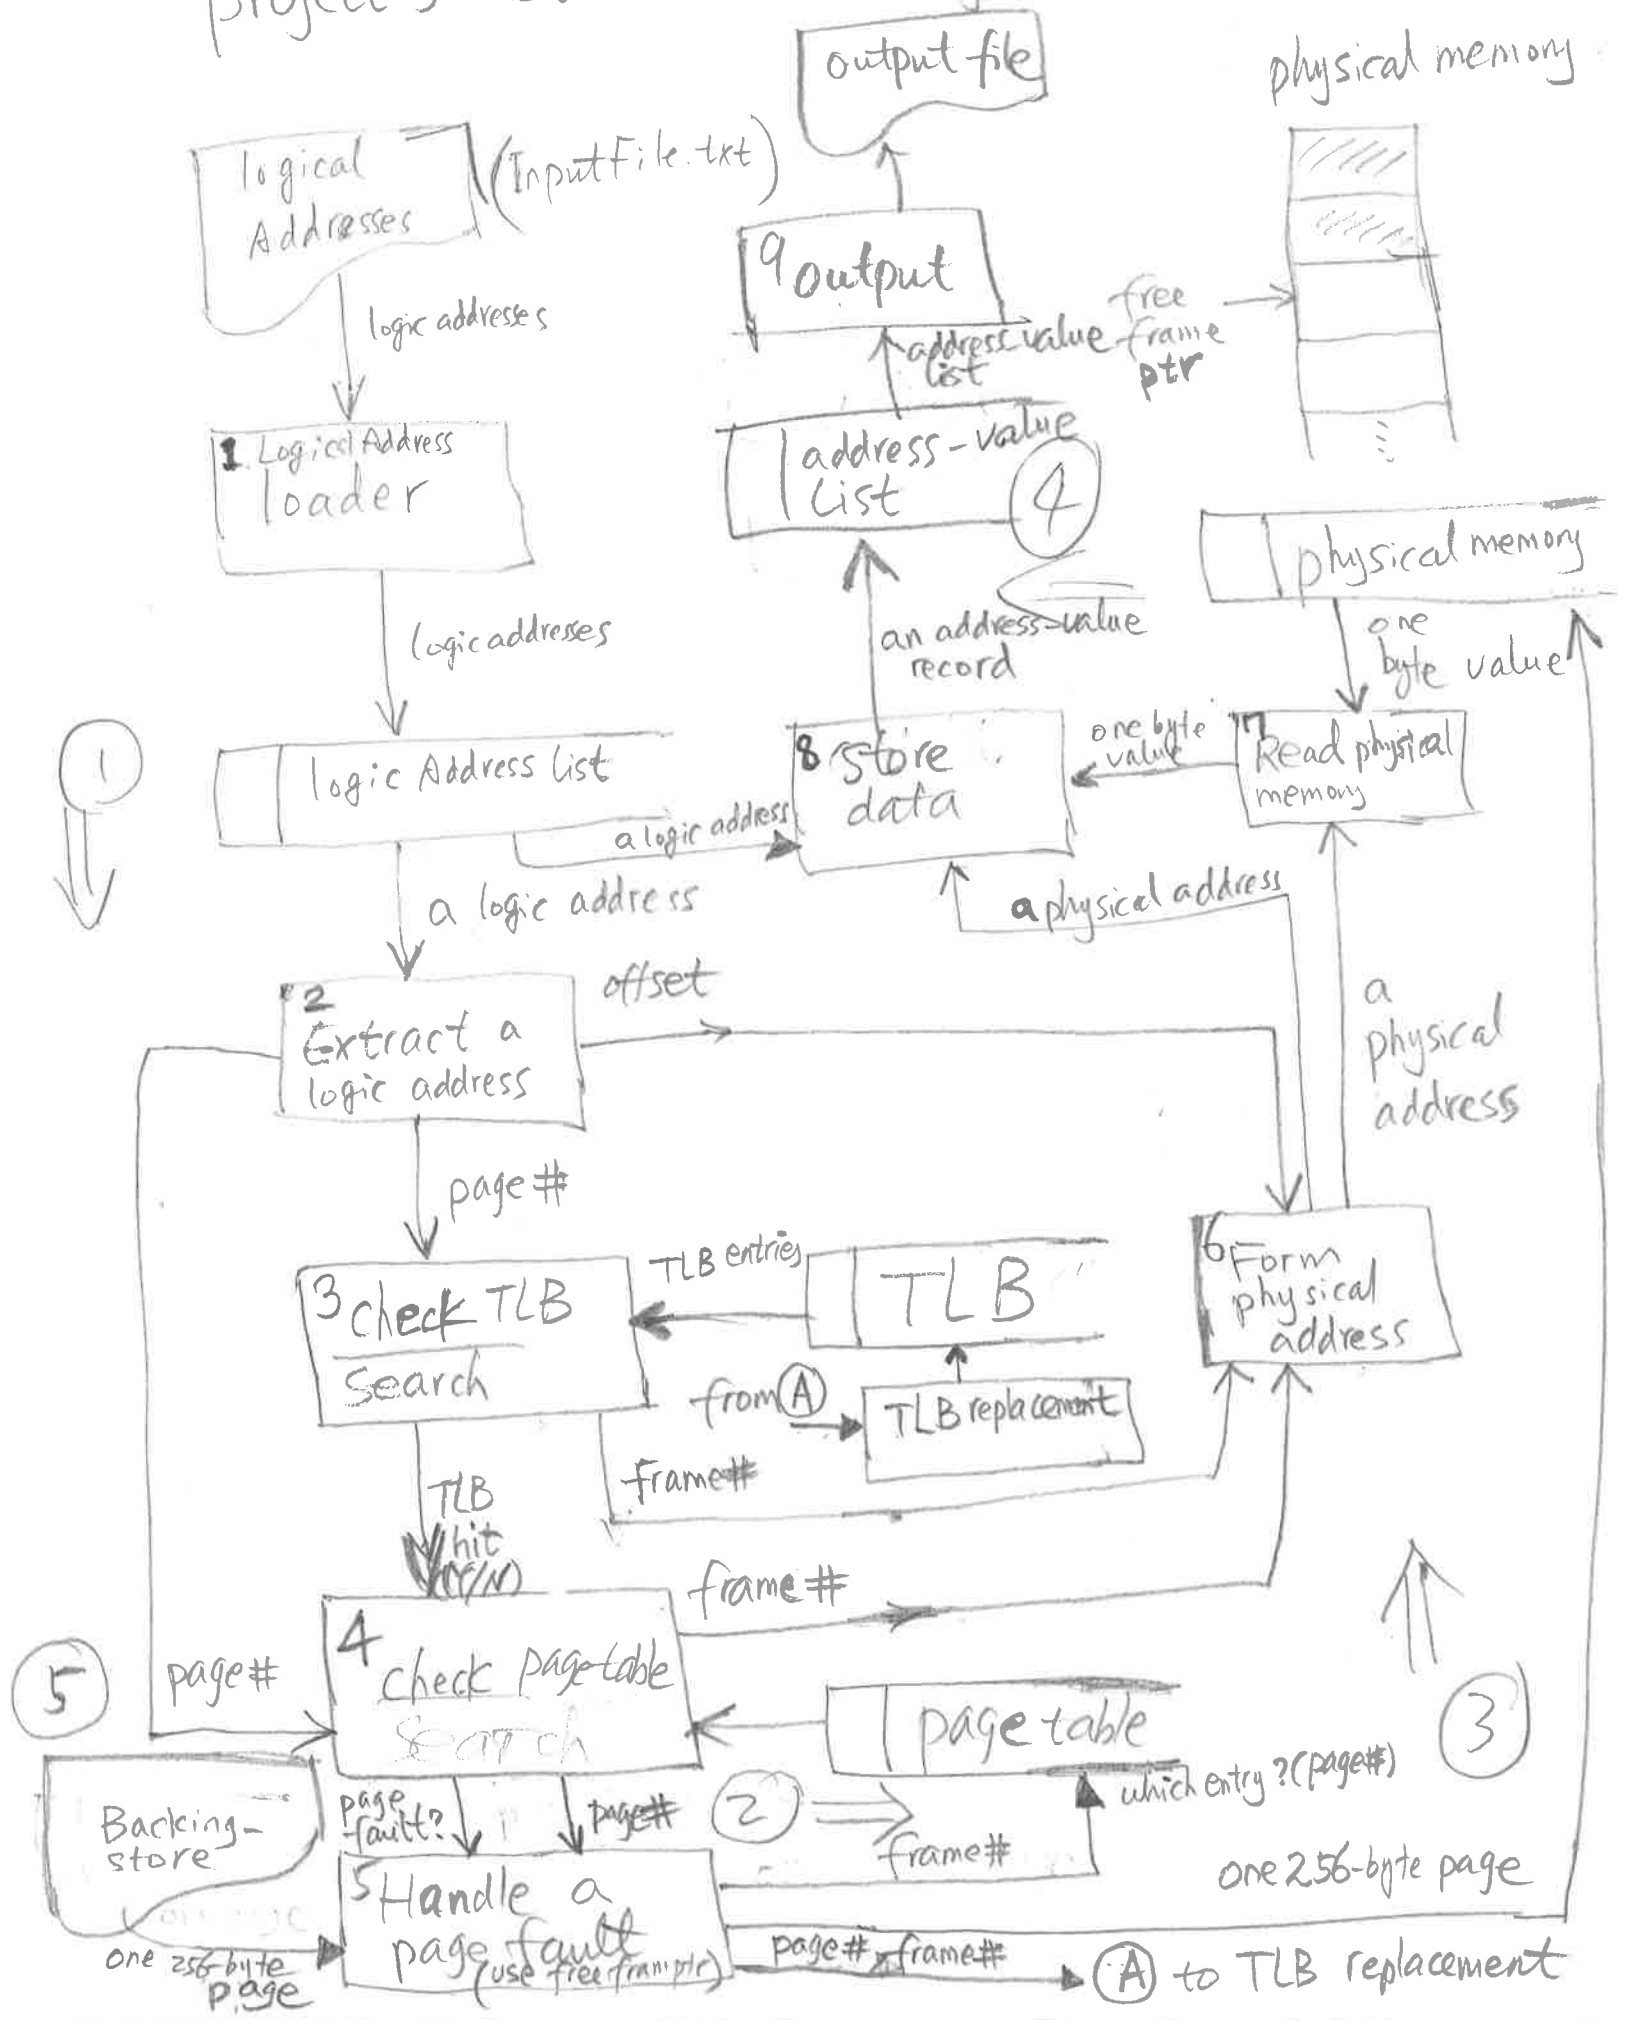 project
output file
physical memory
logical
Addresses
(InputFile.txt)
9 output
logic addresses
free
frame
ptr
address value
list
1. Logical Address
loader
address-value
list
4
physical memory
logic addresses
an address-value
record
one
byte value
1
logic Address list
8 store
data
one byte
value
7
Read physical
memory
a logic address
a logic address
a physical address
offset
2
Extract a
logic address
a
physical
address
page#
3 check TLB
search
TLB entries
TLB
6 Form
physical
address
from A
TLB replacement
frame#
TLB
hit
(Y/N)
frame#
4
check page table
search
5
page#
page table
3
which entry? (page#)
Backing-
store
page
fault?
page#
2
frame#
one 256-byte page
5 Handle a
page fault
(use free fram ptr)
one 256-byte
page
page#, frame#
A to TLB replacement